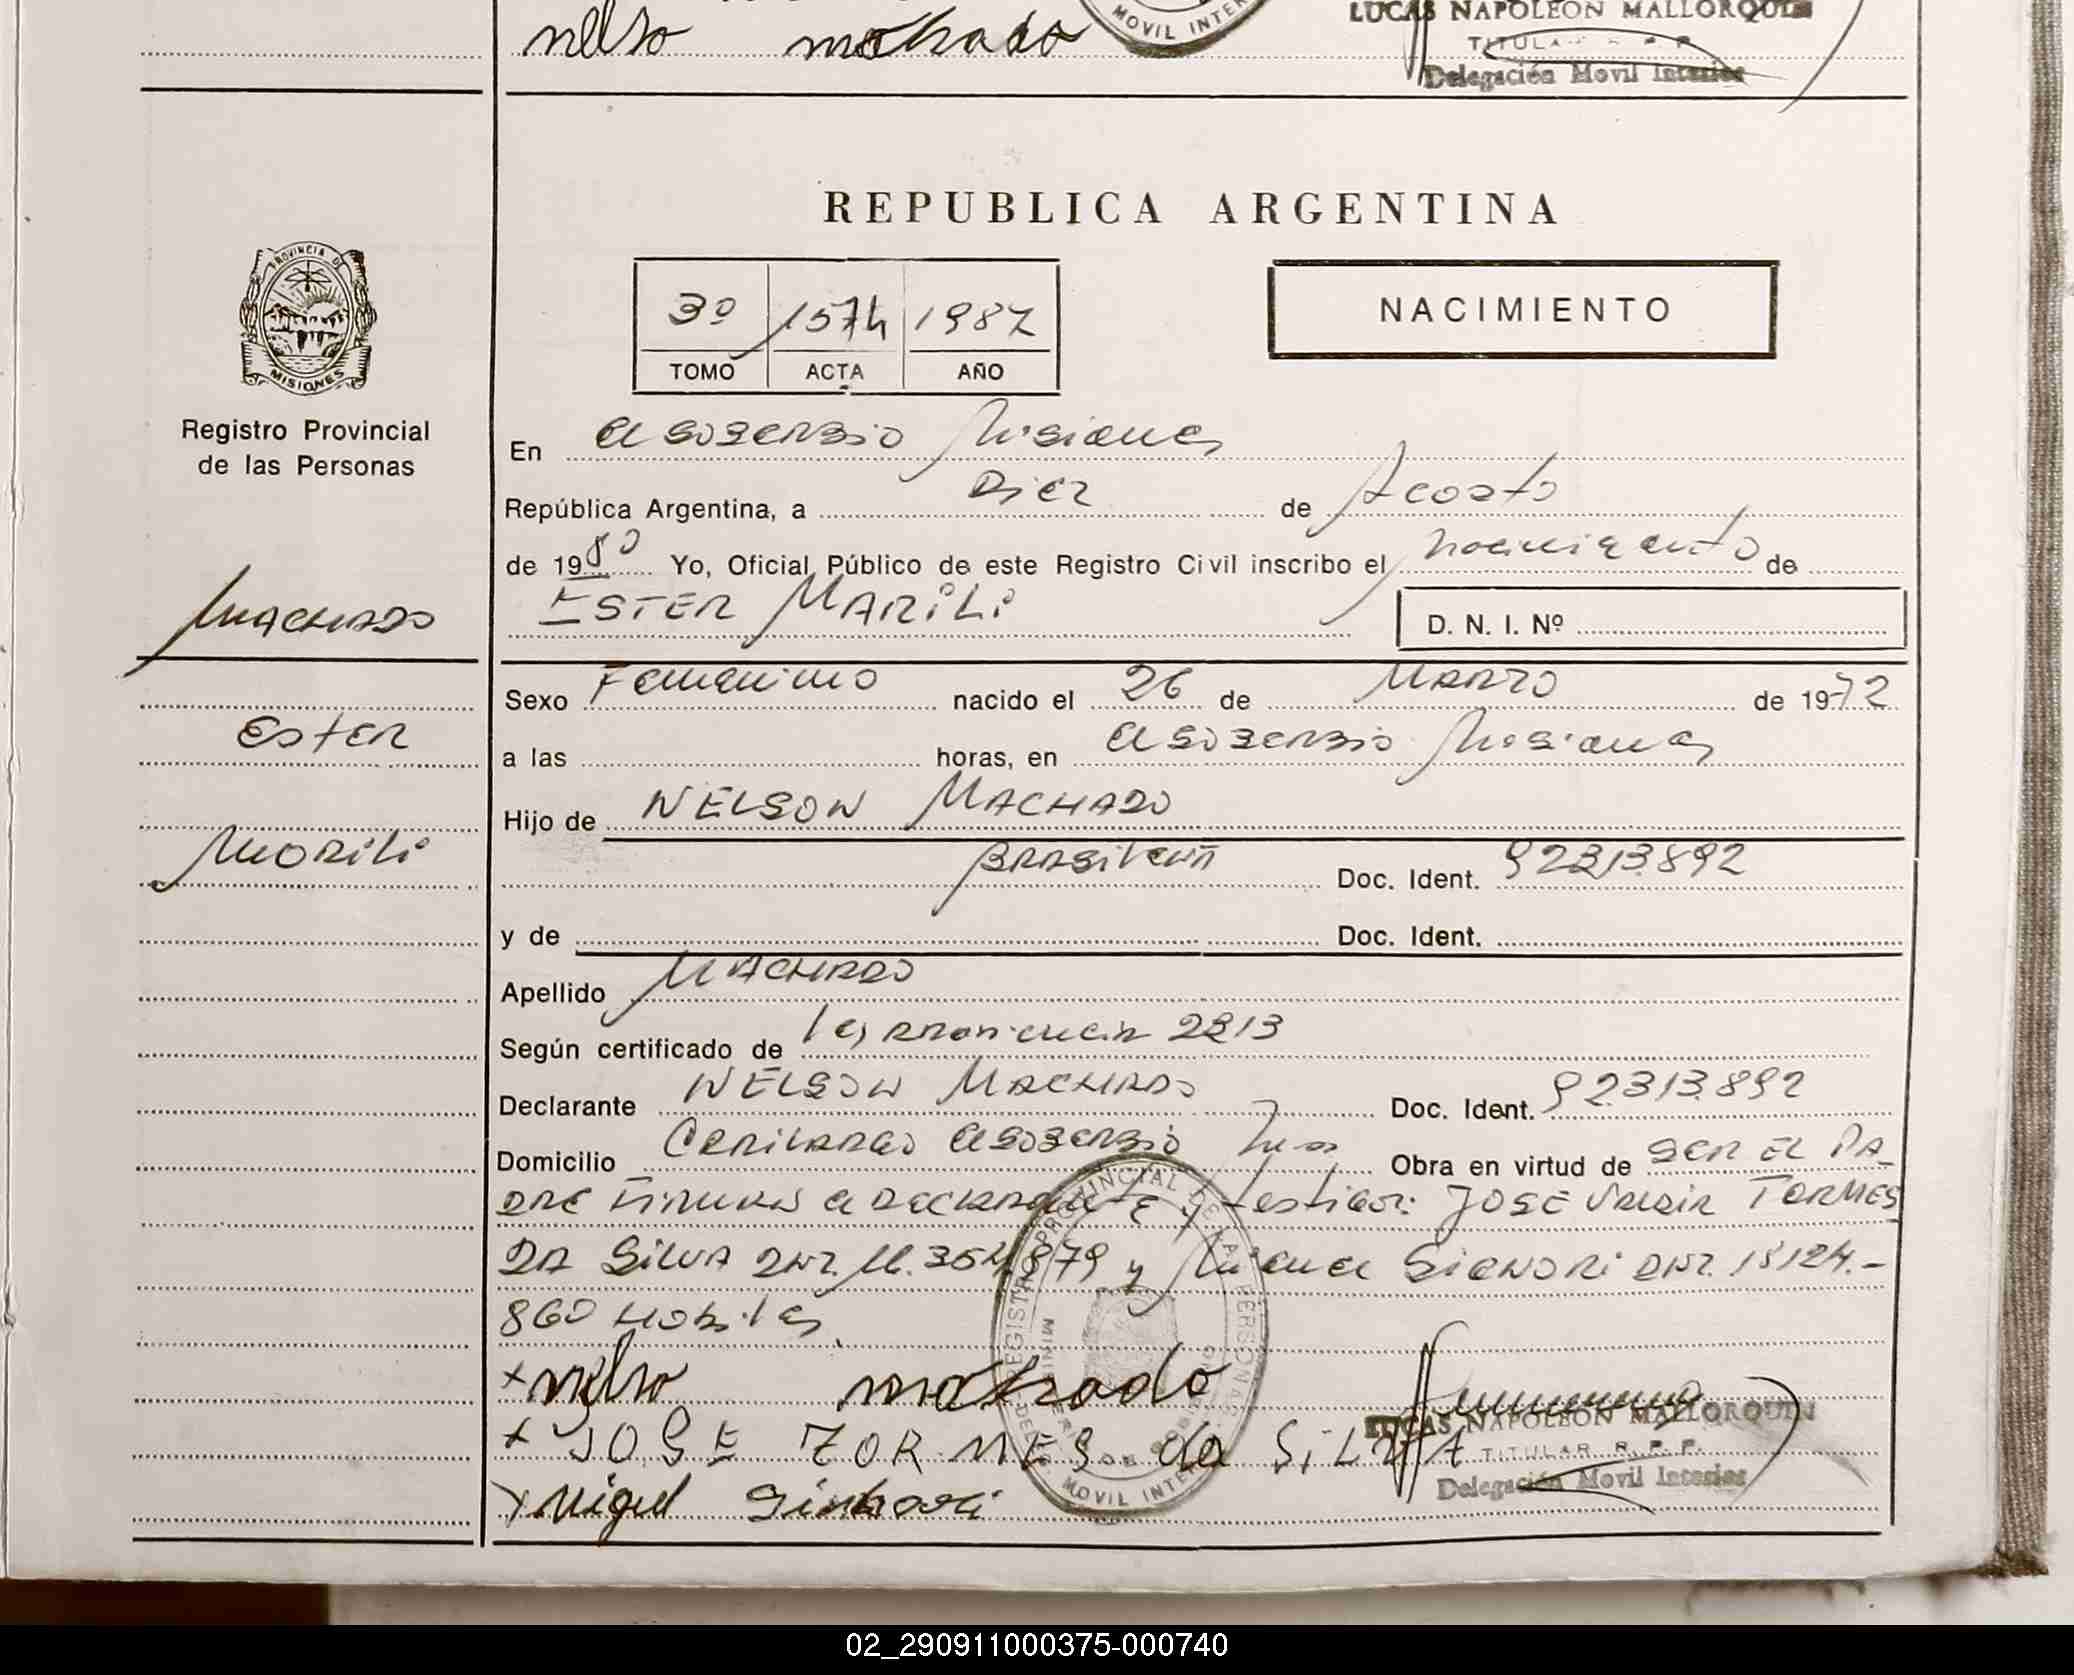 nelso machado
MOVIL INTER
LUCAS NAPOLEON MALLORQUIN
TITULAR R. P. P.
Delegación Movil Interior
REPUBLICA ARGENTINA
PROVINCIA DE
MISIONES
Registro Provincial
de las Personas
3º 1574 1987
TOMO ACTA AÑO
NACIMIENTO
En el soberbio Misiones
República Argentina, a Diez de Agosto
de 1980 Yo, Oficial Público de este Registro Civil inscribo el nacimiento de
ESTER MARILI
D. N. I. Nº
MACHADO
Ester
Marili
Sexo Femenino nacido el 26 de MARZO de 1972
a las horas, en el soberbio Misiones
Hijo de NELSON MACHADO
Brasileña Doc. Ident. 92313892
y de Doc. Ident.
Apellido MACHADO
Según certificado de ley 2213
Declarante NELSON MACHADO Doc. Ident. 92.313.892
Domicilio el soberbio Mnes Obra en virtud de SER EL PA
DRE Firman el declarante y testigos: JOSE TORMES
DA SILVA DNI. y Miguel DNI. 18124.-
860 Habiles
+ nelso machado
+ JOSE TORMES da SiLVA
x Miguel
REGISTRO PROVINCIAL DE LAS PERSONAS
MINISTERIO DE GOBIERNO
DELEG. MOVIL INTERIOR
LUCAS NAPOLEON MALLORQUIN
TITULAR R. P. P.
Delegación Movil Interior
02_290911000375-000740